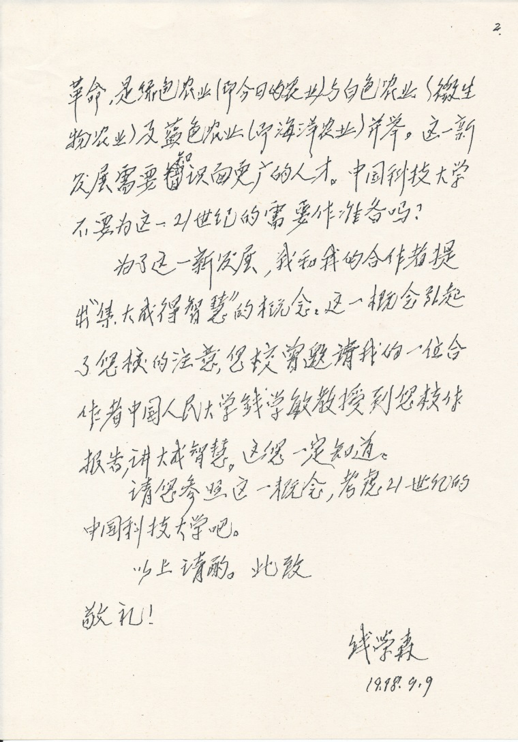 2.
革命,是绿色农业(即今日的农业)与白色农业(微生
物农业)及蓝色农业(即海洋农业)并举。这一新
发展需要知识面更广的人才。中国科技大学
不要为这一21世纪的需要作准备吗?
为了这一新发展,我和我的合作者提
出“集大成得智慧”的概念。这一概念引起
了您校的注意,您校曾邀请我的一位合
作者中国人民大学钱学敏教授到您校作
报告,讲大成智慧。这您一定知道。
请您参照这一概念,考虑21世纪的
中国科技大学吧。
以上请酌。此致
敬礼!
钱学森
1998.9.9